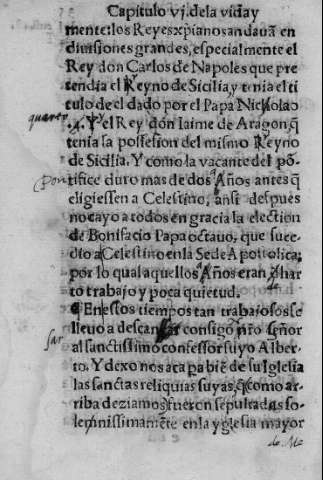 Capitulo vj. dela vida y
mente: los Reyes xpianos andauã en
diuisiones grandes, especialmente el
Rey don Carlos de Napoles que pre
tendia el Reyno de Sicilia y tenia el ti
tulo de el dado por el Papa Nicholao
quarto
.4. Y el Rey don Iaime de Aragon q̃
tenia la possesion del mismo Reyno
de Sicilia. Y como la vacante del põ-
tifice duro mas de dos Años antes q̃
eligiessen a Celestino, ansi despues
no cayo a todos en gracia la election
de Bonifacio Papa octauo, que suce-
dio a Celestino en la Sede Apostolica;
por lo qual aquellos Años eran har
to trabajo y poca quietud.
¶ En estos tiempos tan trabajosos se
lleuo a descansar consigo ñro señor
al sanctissimo confessor suyo Alber-
to. Y dexonos aca pa biẽ de su Iglesia
las sanctas reliquias suyas, q̃ como ar
riba deziamos fueron sepultadas so-
lemnissimamẽte en la yglesia mayor
de Me